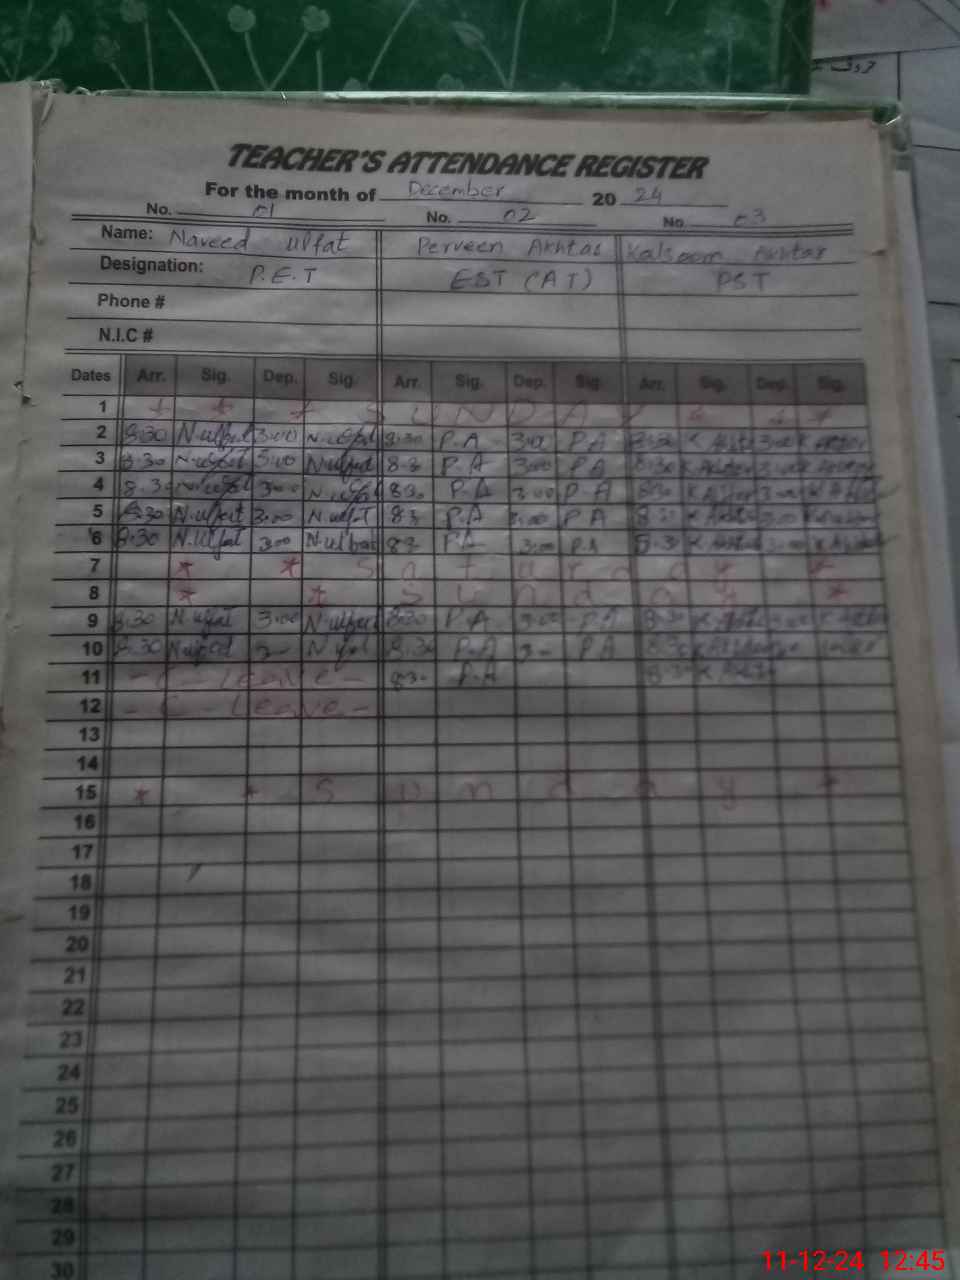 حروف
TEACHER'S ATTENDANCE REGISTER
For the month of December 2024
No. 01 No. 02 No. 03
Name: Naveed Ulfat Perveen Akhtar Kalsoom Akhtar
Designation: P.E.T EST (AT) PST
Phone #
N.I.C #
Dates Arr. Sig. Dep. Sig. Arr. Sig. Dep. Sig. Arr. Sig. Dep. Sig.
1 * * * S U N D A Y * * *
2 8:30 N.ulfat 3:00 N.ulfat 8:30 P.A 3:00 P A 8:30 K Akhtar 3:00 K Akhtar
3 8:30 N.ulfat 3:00 N.ulfat 8:3 P.A 3:00 P A 8:30 K Akhtar 3:00 K Akhtar
4 8:30 N.ulfat 3:00 N.ulfat 830 P.A 3:00 P A 830 K Akhtar 3:00 K Akhtar
5 8:30 N.ulfat 3:00 N.ulfat 83 P.A 3:00 P A 8:30 K Akhtar 3:00
6 8:30 N.ulfat 300 N.ulfat 83 PA 3:00 P.A 8:30 K Akhtar 3:00 K Akhtar
7 * * S a t u r d a y *
8 * * S u n d a y *
9 8:30 N.ulfat 3:00 N.ulfat 8:30 P.A 3:00 P A 8:30 K Akhtar K Akhtar
10 8:30 N.ulfat 3- N.ulfat 8:30 P.A 3- P A 8:30 K Akhtar
11 - C - Leave - 830 P.A 8:30 K Akhtar
12 - C - Leave -
13
14
15 * * S u n d a y *
16
17
18
19
20
21
22
23
24
25
26
27
28
29
30
11-12-24 12:45